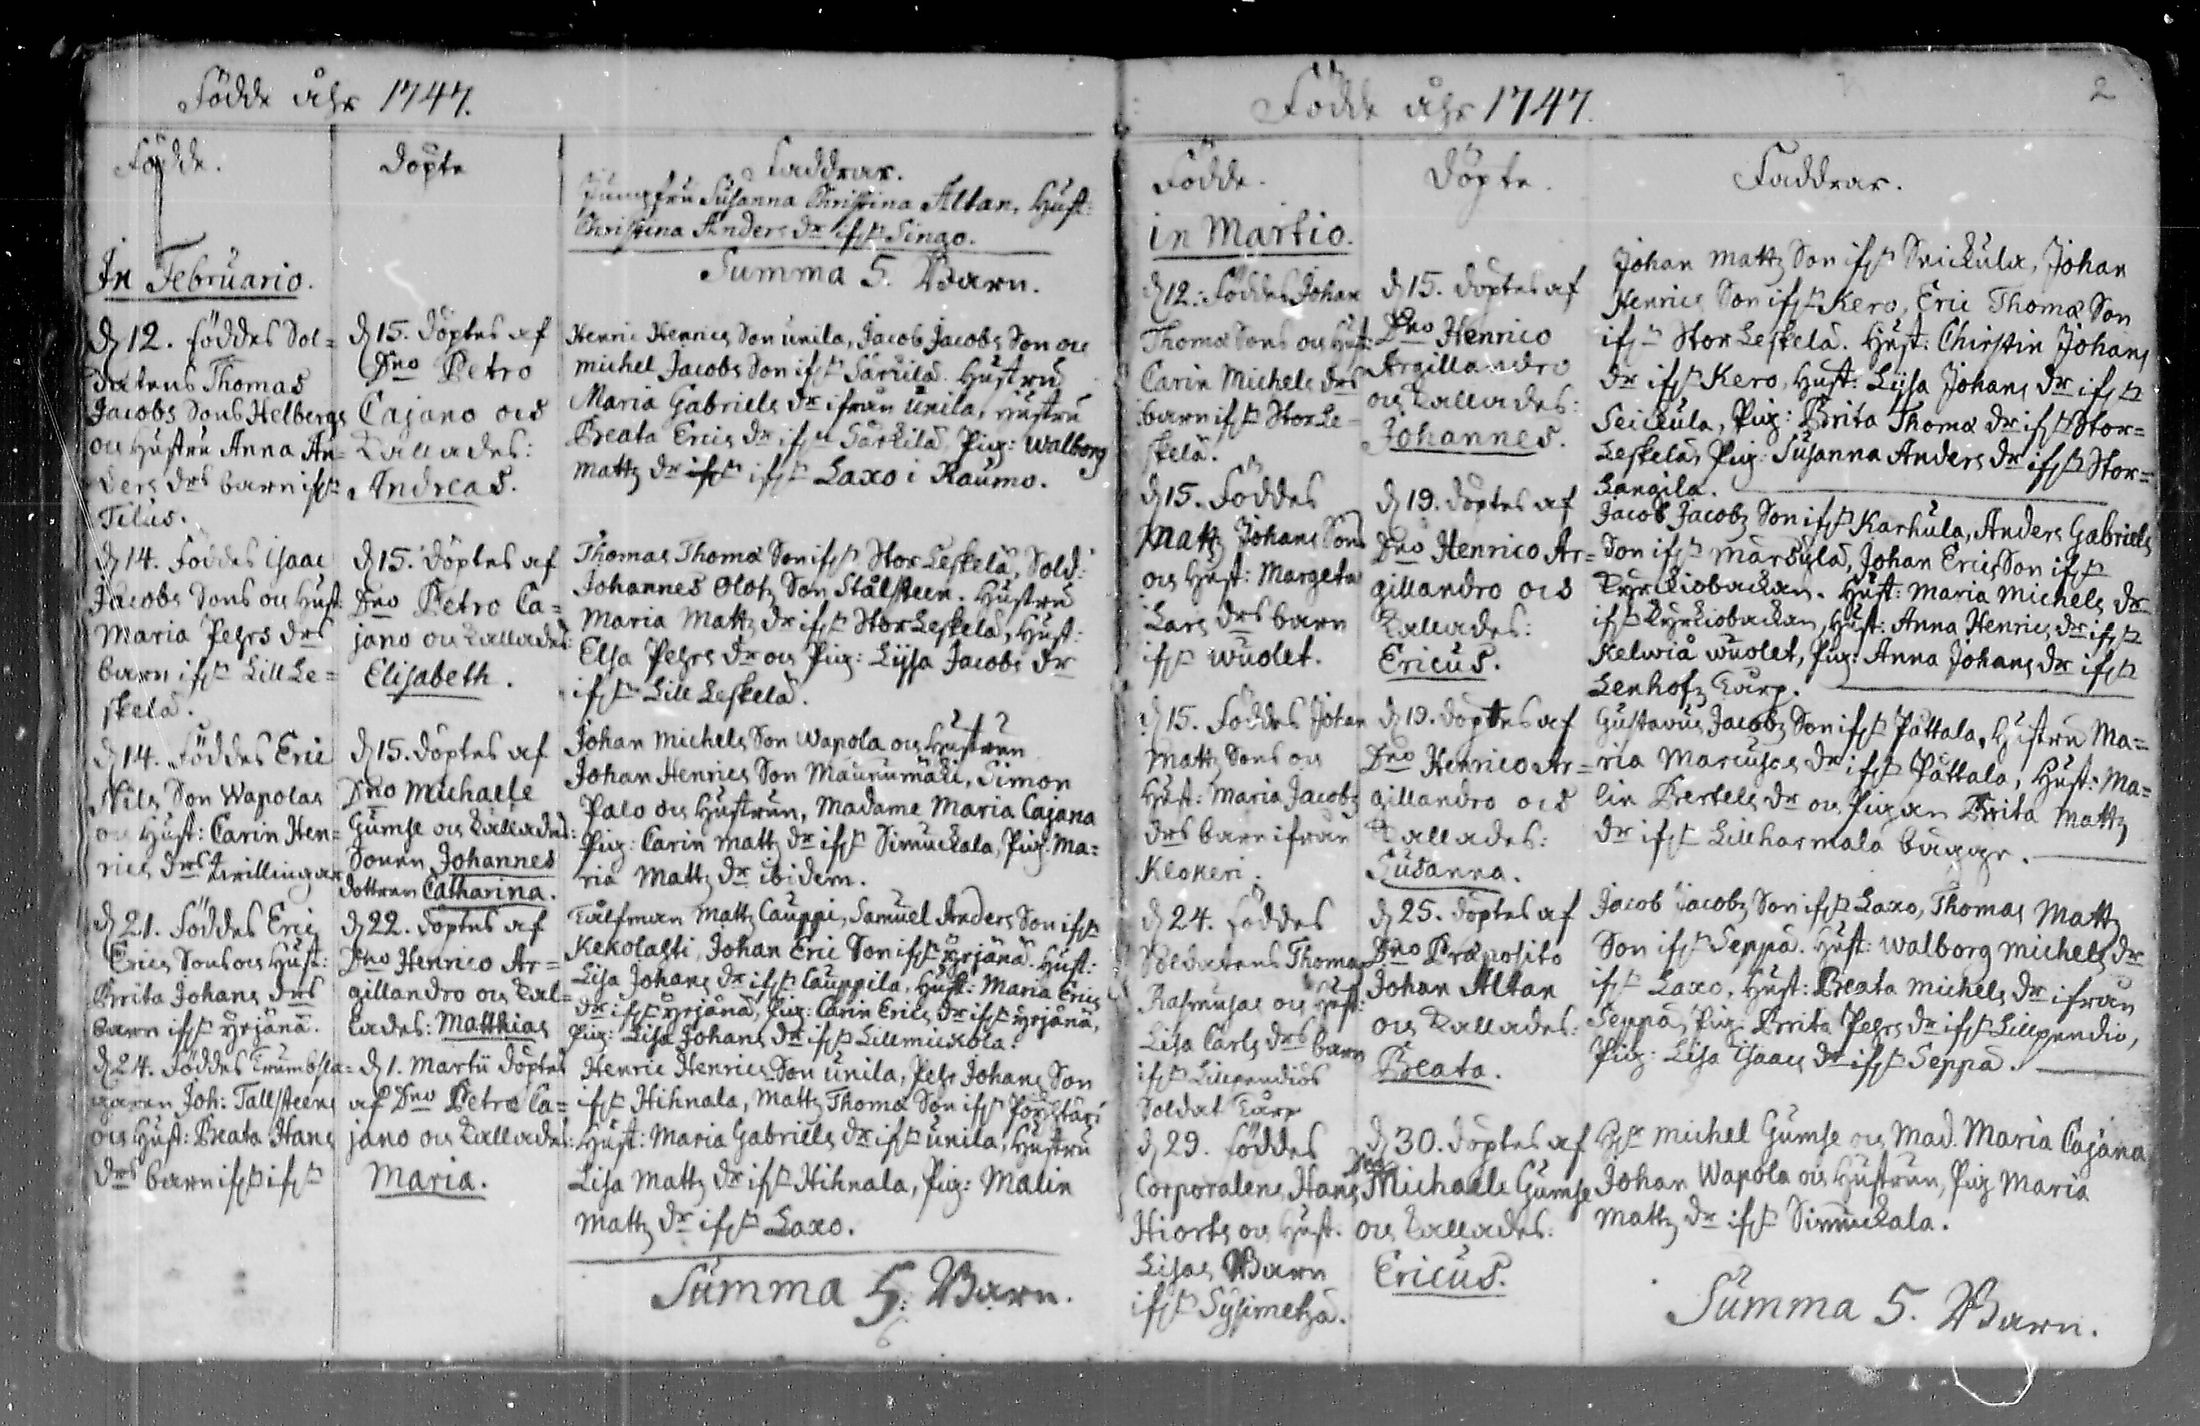 Födde åhr 1747.
Födde.
Döpte
Faddrar.
Jungfru Susanna Christina Altan, Hust:
Christina Anders dr ifr Singo.
Summa 5. Barn.
In Februario.
d 12. föddes Sol=
datens Thomas
Jacobs Sons Helbergs
och Hustru Anna An=
ders drs barn ifr
Tilus.
d 15. döptes af
Dno Petro
Cajano och
kallades:
Andreas.
Henric Henrics Son unila, Jacob Jacobs Son och
michel Jacobs Son ifr Särkilä. Hustru
Maria Gabriels dr ifrån unila, Hustru
Beata Erics dr ifr Särkilä, Pig: Walborg
matts dr ifr Laxo i Raumo.
d 14. föddes Isaac
Jacobs Sons och Hust:
Maria Pehrs drs
barn ifr Lill Le=
skelä.
d 15. döptes af
Dno Petro Ca=
jano och kallades:
Elisabeth.
Thomas Thomæ Son ifr Stor Leskelä, Sold:
Johannes Olofs Son Stålsteen. Hustru
Maria Matts dr ifr Stor Leskelä, Hust:
Elsa Pehrs dr och Pig: Lijsa Jacobs dr
ifr Lill Leskelä.
d 14. föddes Eric
Nils Son Wapolas
och Hust: Carin Hen=
rics drs tvillingar
d 15. döptes af
Dno Michaele
Gumse och kallades:
Sonen Johannes
dottren Catharina.
Johan Michels Son Wapola och Hustrun
Johan Henrics Son Maunumäki, Simon
Palo och Hustrun, Madame Maria Cajana
Pig: Carin matts dr ifr Simuckala, Pig: Ma=
ria Matts dr ibidem.
d 21. föddes Eric
Erics Sons och Hust:
Brita Johans drs
barn ifr Yrjänä.
d 22. döptes af
Dno Henrico Ar=
gillandro och kal=
lades: Matthias
Matts Cauppi, Samuel Anders Son ifr
Kekolasti, Johan Eric Son ifr Yrjänä. Hust:
Lisa Johans dr ifr Cauppila, Hust: Maria Erics
dr ifr Yrjänä, Pig: Carin Erics dr ifr Yrjänä,
Pig: Lisa Johans dr ifr Lillmickola.
d 24. föddes Trumbsla=
garen Joh: Tallsteens
och Hust: Beata Hans
drs barn ifr ifr
d 1. Martii döptes
af Dno Petro Ca=
jano och kallades:
Maria.
Henric Henrics Son unila, Pehr Johans Son
ifr Hihnala, Matts Thomæ Son ifr
Hust: Maria Gabriels dr ifr unila, Hustru
Lisa Matts dr ifr Hihnala, Pig: Malin
Matts dr ifr Laxo.
Summa 5. Barn.
6
Födde åhr 1747.
2
Födde.
Döpte.
Faddrar.
in Martio.
d 12. föddes Johan
Thomæ Sons och Hust:
Carin Michels drs
barn ifr Stor Le=
skelä.
d 15. döptes af
Dno Henrico
Argillandro
och kallades:
Johannes.
Johan Matts Son ifr Seickula, Johan
Henrics Son ifr Kero, Eric Thomæ Son
ifr Stor Leskelä. Hust: Chirstin Johans
dr ifr Kero, Hust: Lijsa Johans dr ifr
Seickula, Pig: Brita Thomæ dr ifr Stor=
Leskelä, Pig: Susanna Anders dr ifr Stor=
Langila.
d 15. föddes
Matts Johans Sons
och Hust: Margeta
Lars drs barn
ifr Wuolet.
d 19. döptes af
Dno Henrico Ar=
gillandro och
kallades:
Ericus.
Jacob Jacobs Son ifr Karhula, Anders Gabriels
Son ifr Märsylä, Johan Erics Son ifr
Kyrkiobackan. Hust: Maria Michels dr
ifr Kyrkiobackan, Hust: Anna Henrics dr ifr
Kelwiå wuolet, Pig: Anna Johans dr ifr
Lenhofz Torp.
d 15. föddes Johan
Matts Sons och
Hust: Maria Jacobs
drs barn ifrån
Klokeri.
d 19. döptes af
Dno Henrico Ar=
gillandro och
kallades:
Susanna.
Gustavus Jacobs Son ifr Pättala, Hustru Ma=
ria Marcusæ dr ifr Pättala, Hust: Ma=
lin Bertels dr och Pigan Brita Matts
dr ifr Lillharmala bägge.
d 24. föddes
Soldatens Thomas
Rasmusas och Hust:
Lisa Carls drs barn
ifr Lillpendiös
Soldat Torp
d 25. döptes af
Dno Præposito
Johan Altan
och kallades:
Beata.
Jacob Jacobs Son ifr Laxo, Thomas Matts
Son ifr Seppä. Hust: Walborg Michels dr
ifr Laxo, Hust: Beata Michels dr ifrån
Seppä, Pig: Brita Pehrs dr ifr Lillpendiö,
Pig: Lisa Isaacs dr ifr Seppä.
d 29. föddes
Corporalens Hans
Hiorts och Hust.
Lisas Barn
ifr Sysimetsä.
d 30. döptes af
Dno Michaele Gumse
och kallades:
Ericus.
Hr Michel Gumse och Mad. Maria Cajana
Johan Wapola och Hustrun, Pig Maria
Matts dr ifr Simuckala.
Summa 5. Barn.